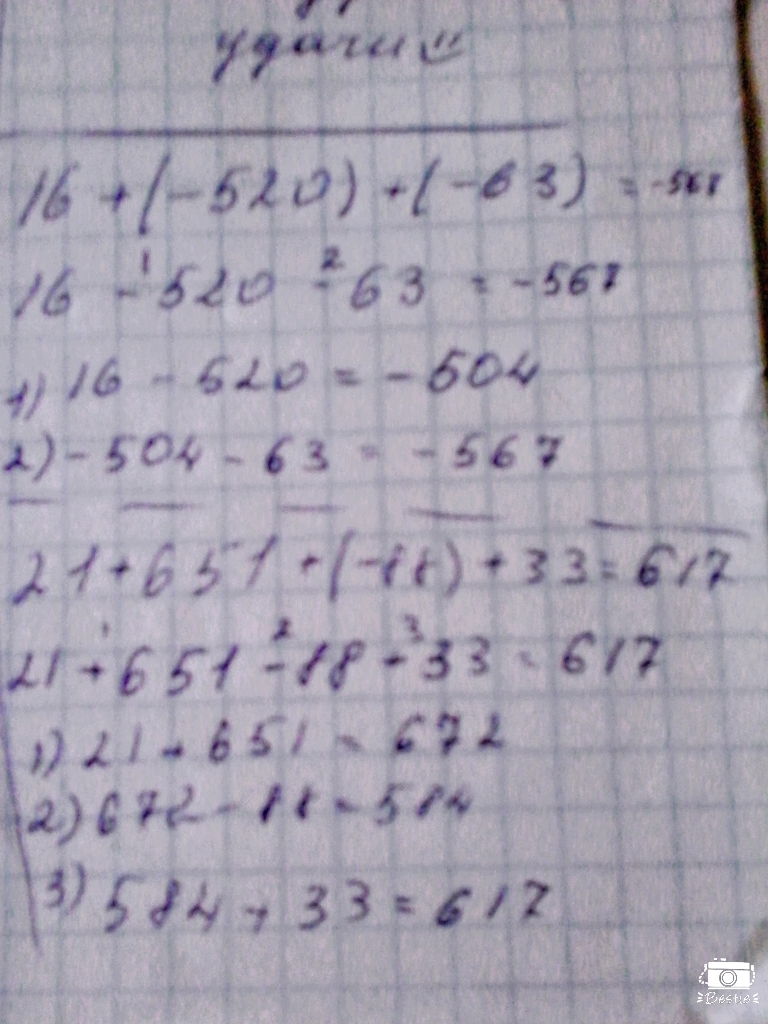 удачи
16 + (-520) + (-63) = -567
16 - 520 - 63 = -567
1 2
1) 16 - 520 = -504
2) -504 - 63 = -567
21 + 651 + (-88) + 33 = 617
1 2 3
21 + 651 - 88 + 33 = 617
1) 21 + 651 = 672
2) 672 - 88 = 584
3) 584 + 33 = 617
Bestie